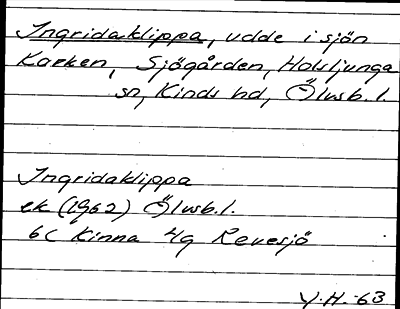 Ingridaklippa, udde i sjön
Karken, Sjögården, Holsljunga
sn, Kinds hd, Älvsb. l.
Ingridaklippa
ek (1962) Älvsb. l.
6C Kinna 4g Revesjö
V. H. -63